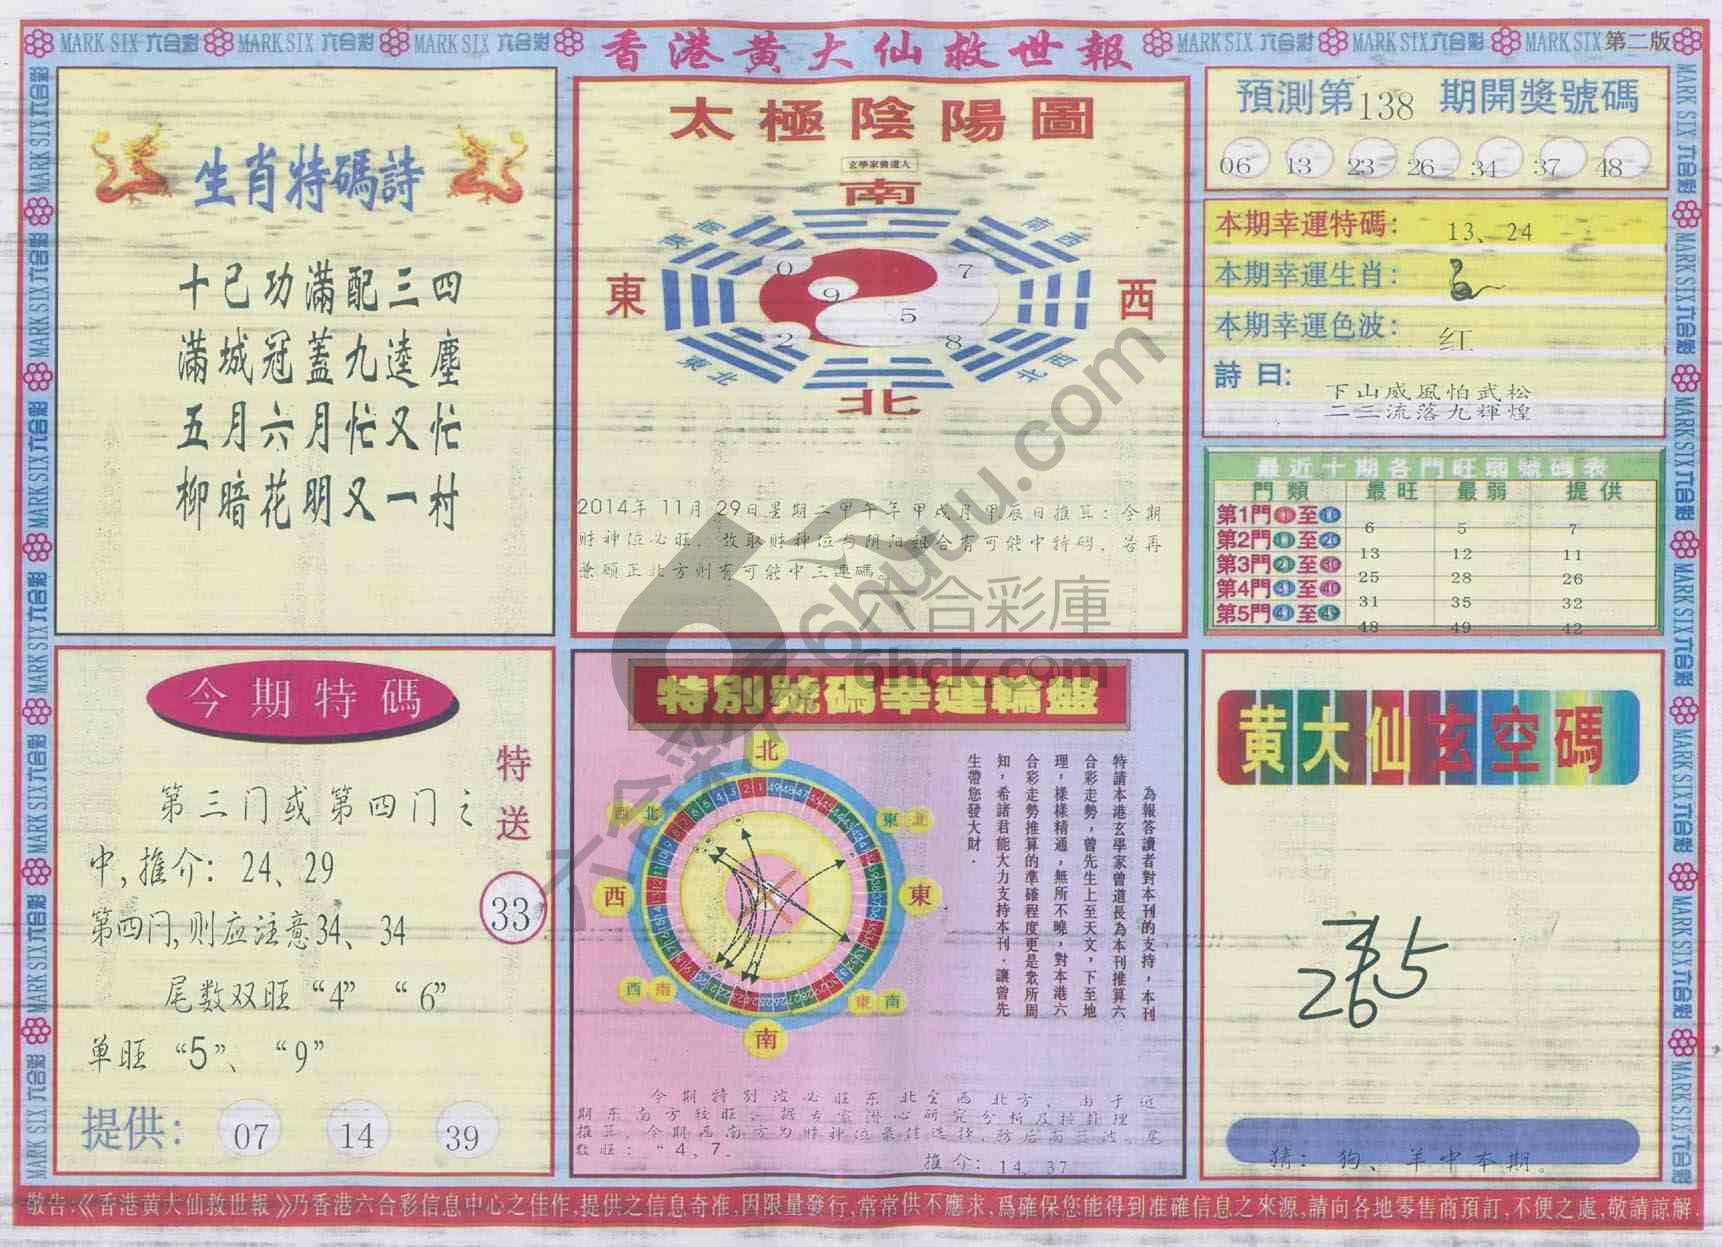 MARK SIX 六合彩 MARK SIX 六合彩 MARK SIX 六合彩
香港黄大仙救世報
MARK SIX 六合彩 MARK SIX 六合彩 MARK SIX 第二版
生肖特碼詩
十已功滿配三四
滿城冠蓋九逵塵
五月六月忙又忙
柳暗花明又一村
太極陰陽圖
玄學家曾道人
南
東南
南西
東
西
東北
西北
北
0
7
9
5
2
8
2014年 11月 29日星期二甲午年甲戌月甲辰日推算：今期
财神位必旺，故取财神位与阴阳组合有可能中特码，若再
兼顾正北方则有可能中三連碼。
預測第138期開獎號碼
06 13 23 26 34 37 48
本期幸運特碼：13、24
本期幸運生肖：
本期幸運色波：红
詩曰：
下山威風怕武松
二三流落九輝煌
最近十期各門旺弱號碼表
門類 最旺 最弱 提供
第1門 1 至 10 6 5 7
第2門 11 至 20 13 12 11
第3門 21 至 30 25 28 26
第4門 31 至 40 31 35 32
第5門 41 至 49 48 49 42
今期特碼
第三门或第四门之
中,推介：24、29
第四门,则应注意34、34
尾数双旺“4”“6”
单旺“5”、“9”
特送
33
提供：07 14 39
特别號碼幸運輪盤
北
西北
東北
西
東
西南
東南
南
為報答讀者對本刊的支持，本刊
特請本港玄學家曾道長為本刊推算六
合彩走勢，曾先生上至天文，下至地
理，樣樣精通，無所不曉，對本港六
合彩走勢推算的準確程度更是眾所周
知，希諸君能大力支持本刊．讓曾先
生帶您發大財．
今期特别波必旺东北至西北方，由于近
期东南方较旺，据专家潜心研究分析及按推理
推算，今期西南方为财神位最佳选择，防后南三波。尾
数旺：“4、7.
推介：14、37
黄大仙玄空碼
265
猜：狗、羊中本期。
敬告:《香港黄大仙救世報》乃香港六合彩信息中心之佳作,提供之信息奇准,因限量發行,常常供不應求,爲確保您能得到准確信息之來源,請向各地零售商預訂,不便之處,敬請諒解.
六合彩库 6huu.com
六合彩庫
6hck.com